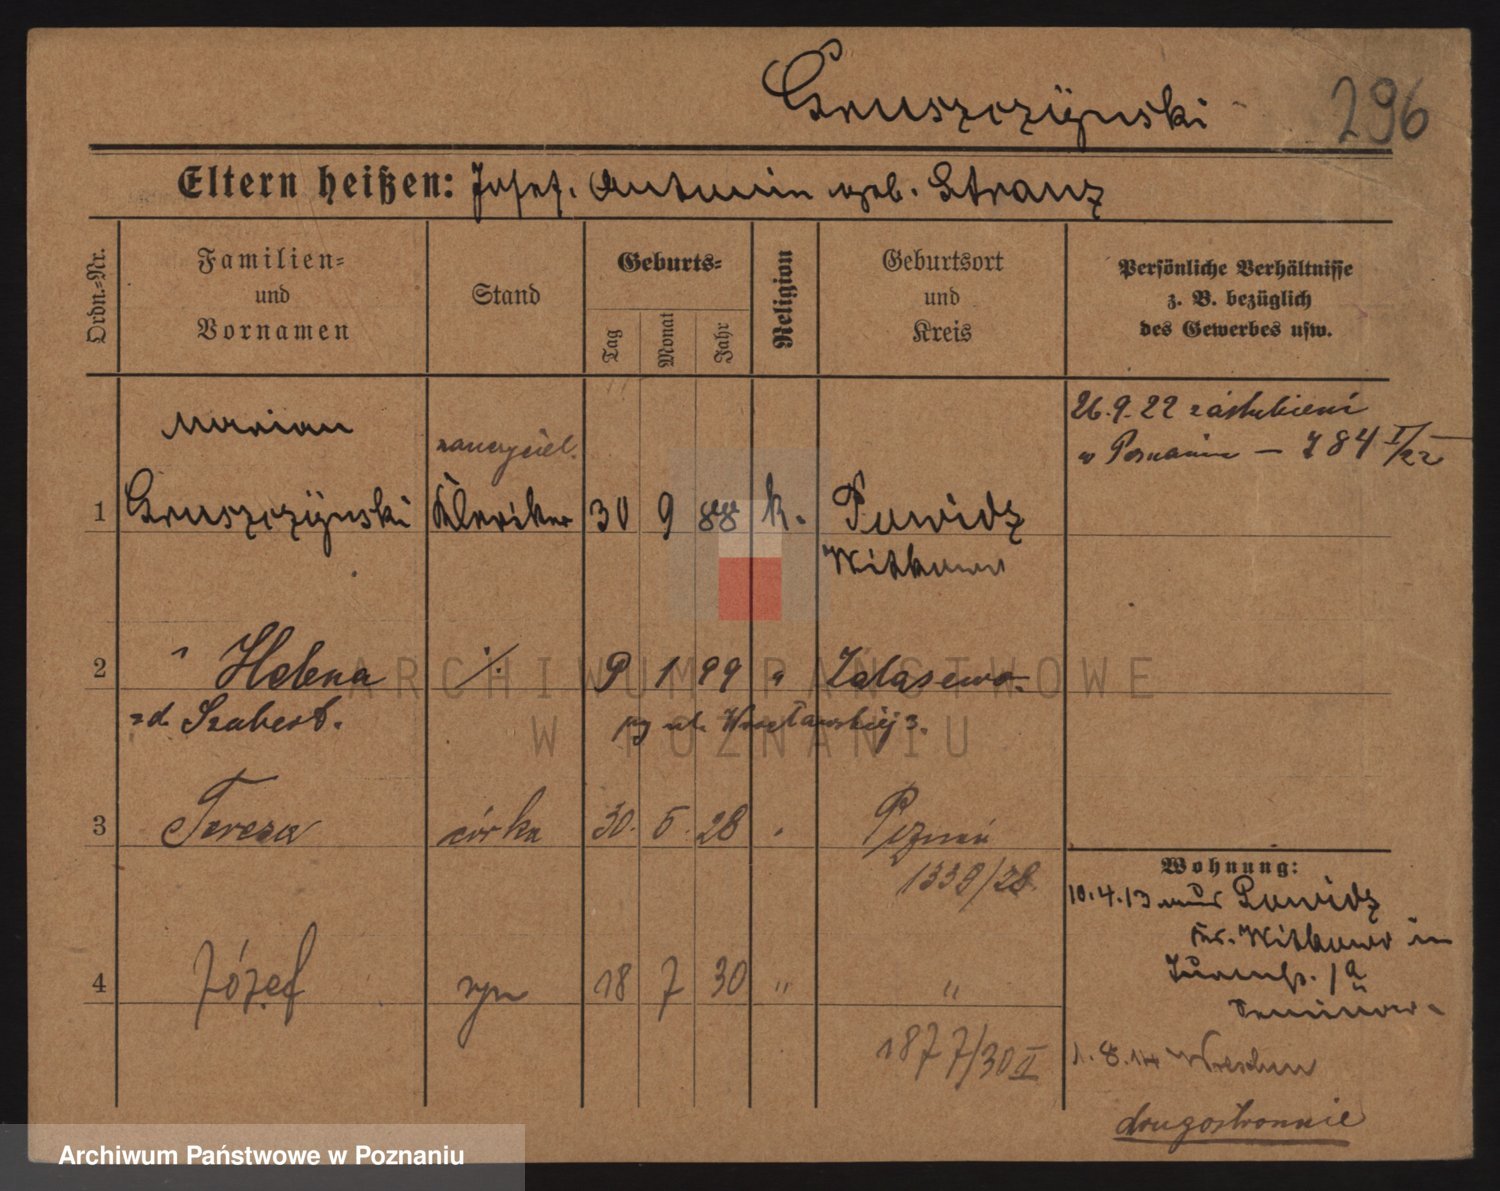 Gruszczÿnski
296
Eltern heißen: Josef. Antonin geb. Stranz
Ordn.=Nr.
Familien=
und
Vornamen
Stand
Geburts=
Tag
Monat
Jahr
Religion
Geburtsort
und
Kreis
Persönliche Verhältnisse
z. B. bezüglich
des Gewerbes usw.
26.9.22 zaślubieni
w Poznaniu — 784 I/22
Marian
nauczyciel.
1 Gruszczÿnski Kleriker 30 9 88 k. Powidz
Witkowo
2 " Helena ·/. 9 1 99 " Zalasewo.
zd. Szubert.
ul. Wrocławskiej 3.
3 Teresa córka 30. 5. 28 " Poznań
1339/28.
4 Józef syn 18 7 30 " "
1877/30 II
Wohnung:
10.4.13 aus Powidz
Kr. Witkowo in
1a
Seminar.
1.8.14 Wreschen
drugostronnie
ARCHIWUM PAŃSTWOWE
W POZNANIU
Archiwum Państwowe w Poznaniu